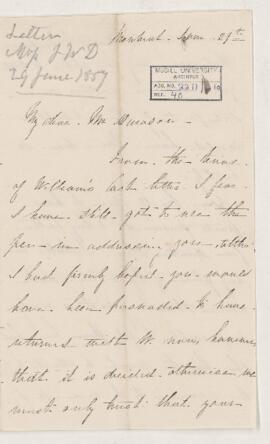 Letter
Mrs J W D
29 June 1857
Montreal June 29th
McGILL UNIVERSITY
ARCHIVES
ACC. NO. 2211
REF. 40
My dear Mr
From the tenor
of William's last letter I fear
I have still got to use the
pen in addressing you, altho'
I had firmly hoped you would
have been persuaded to have
returned with W. now however
that it is decided otherwise we
must only trust that your